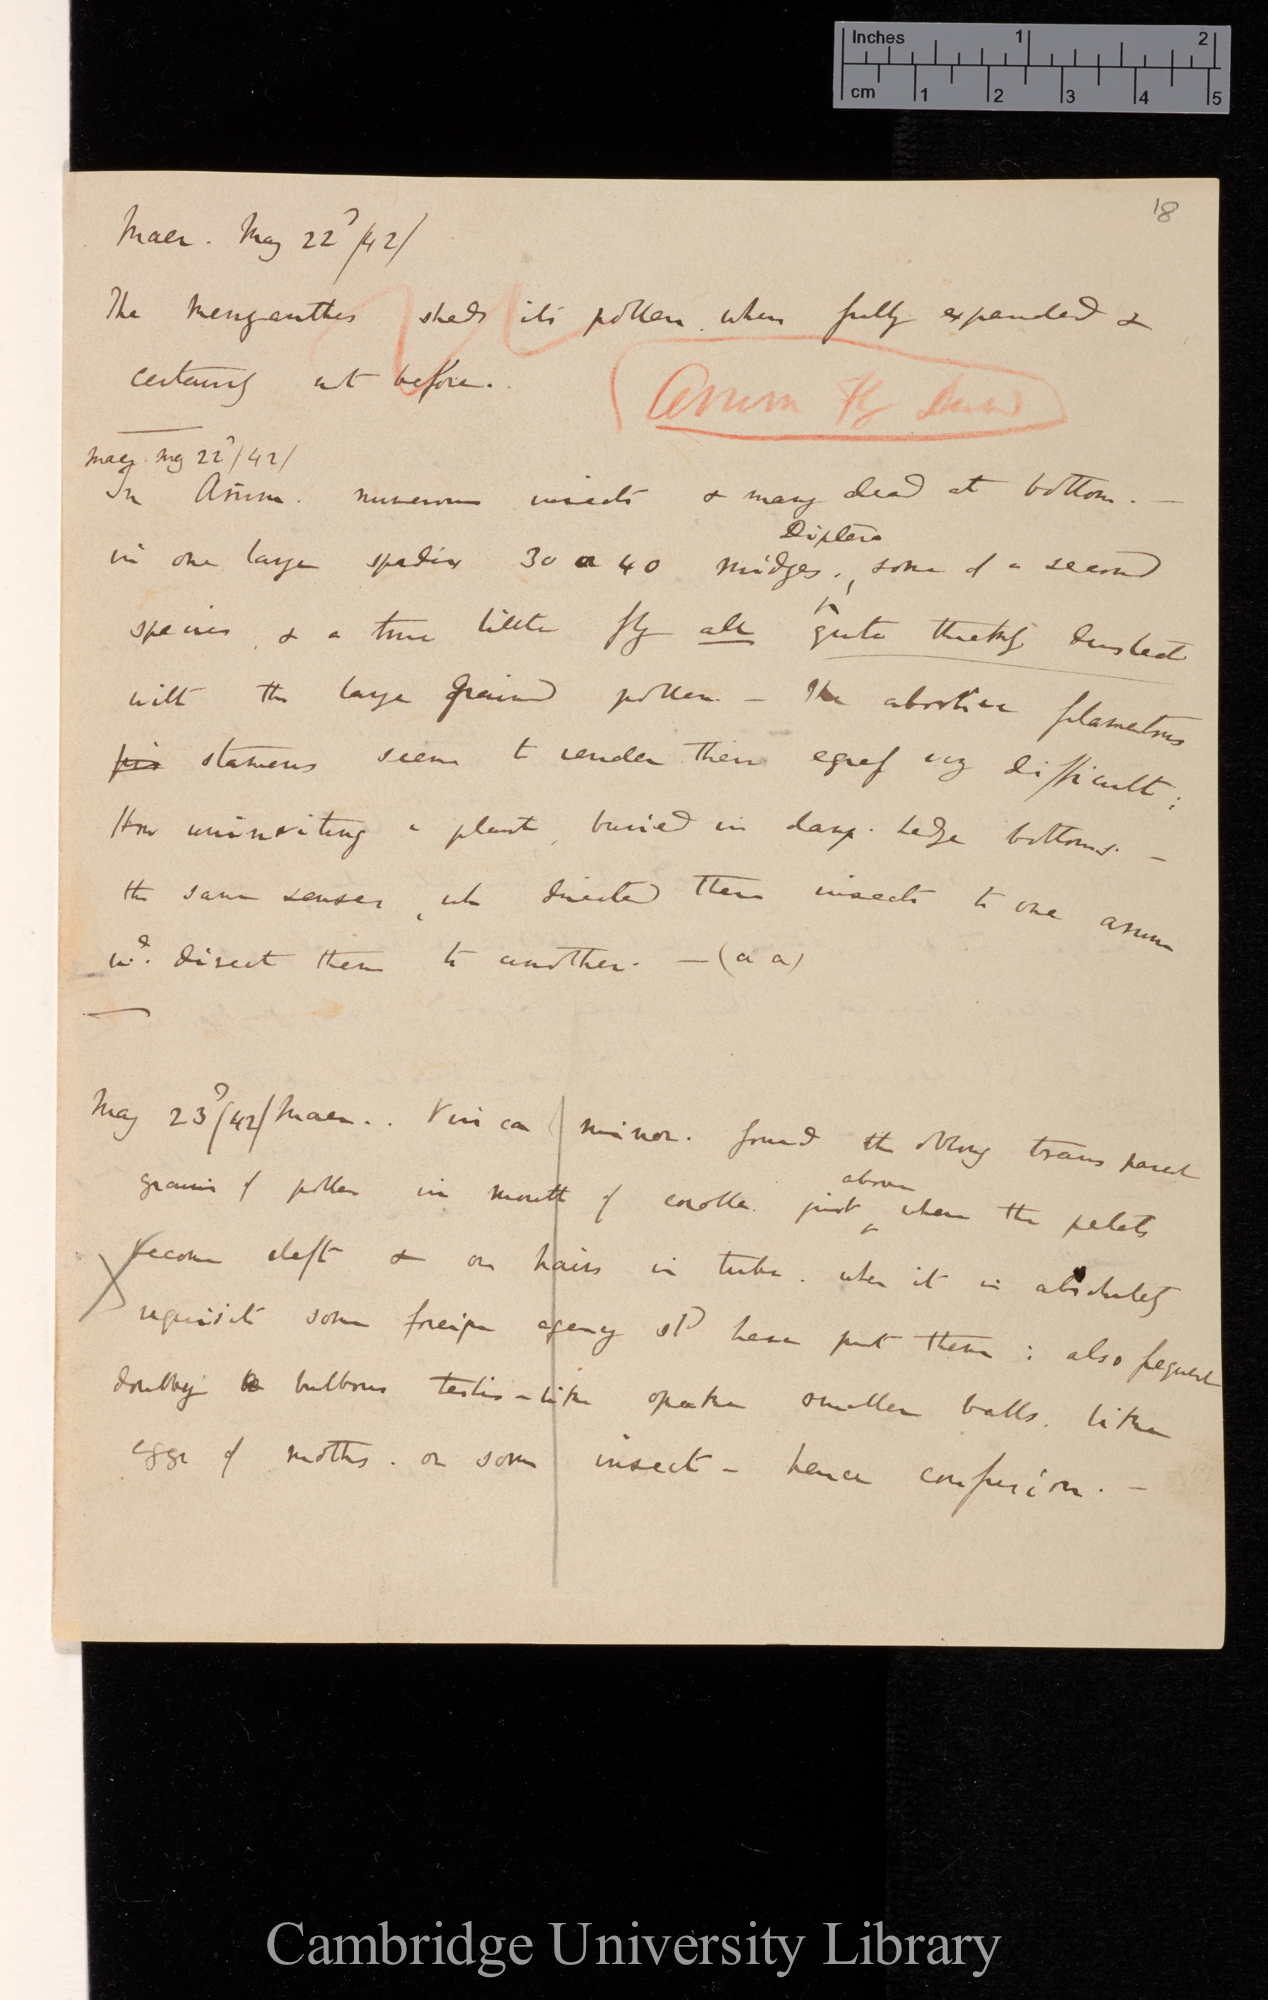 Inches 1 2
cm 1 2 3 4 5
18
Maer. May 22d/42/
The Menyanthes sheds its pollen when fully expanded &
certainly not before.
Arum
Maer May 22d/42/
In Arum. numerous insects & many dead at bottom. —
Diptera
in one large spadix 30 or 40 midges, some of a second
species, & a true little fly all quite thickly dusted
with the large grained pollen — The abortive filamentous
stamens seem to render their egress very difficult;
How uninviting a plant, buried in damp hedge bottoms. —
the same senses, wh directed these insects to one arum
wd. direct them to another. — (a a)
May 23d/42/ Maer.. Vinca minor. found the oblong transparent
above
grains of pollen in mouth of corolla just where the petals
become cleft & on hairs in tube. when it is absolutely
requisite some foreign agency shd have put them; also frequent
bulbous testis-like opake smaller balls. like
eggs of moths. or some insect — hence confusion. —
Cambridge University Library